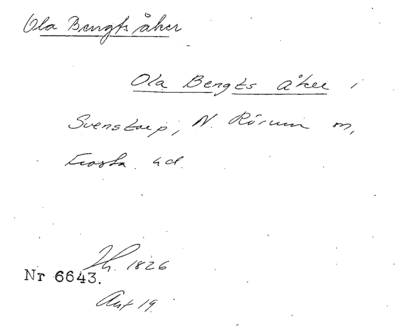 Ola Bengts åker
Ola Bengts åker i
Svenstorp, N. Rörum sn,
Frosta hd.
Lh. 1826
Nr 6643.
Akt 19.